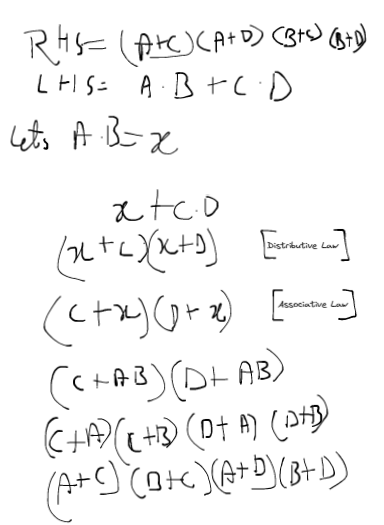 RHS= (A+C) (A+D) (B+C) (B+D)
LHS= A·B + C·D
Lets A·B=x
x+C.D
(x+C)(x+D) [Distributive Law]
(C+x)(D+x) [Associative Law]
(C+AB)(D+AB)
(C+A)(C+B)(D+A)(D+B)
(A+C)(B+C)(A+D)(B+D)